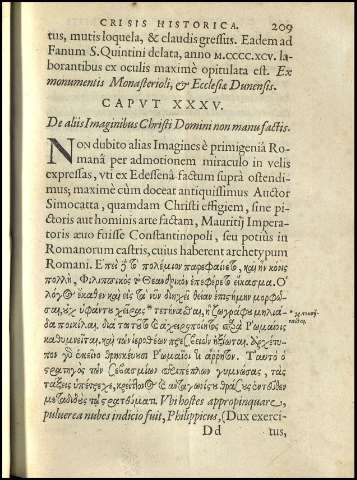 CRISIS HISTORICA. 209
tus, mutis loquela, & claudis gressus. Eadem ad
Fanum S. Quintini delata, anno M.CCCC.XCV. la-
borantibus ex oculis maximè opitulata est. Ex
monumentis Monasterioli, & Ecclesiæ Dunensis.
CAPVT XXXV.
De aliis Imaginibus Christi Domini non manu factis.
NON dubito alias Imagines è primigeniâ Ro-
manâ per admotionem miraculo in velis
expressas, vti ex Edessenâ factum suprà ostendi-
mus; maximè cùm doceat antiquissimus Auctor
Simocatta, quamdam Christi effigiem, sine pi-
ctoris aut hominis arte factam, Mauritij Impera-
toris æuo fuisse Constantinopoli, seu potiùs in
Romanorum castris, cuius haberent archetypum
Romani. Ἐπεὶ δὲ τὸ πολέμιον παρεφαίνετο, καὶ ἦν κόνις
πολλὴ, Φιλιππικὸς τὸ Θεανδρικὸν ἐπεφέρετο εἴκασμα. Ὃ
λόγος ἔκαθεν καὶ εἰς τὰ νῦν διηχεῖ θείαν ἐπιστήμην μορφῶ-
σαι, οὐχ ὑφάντου χεῖρας τεκτήνασθαι, ἢ ζωγράφου μηλιά-
δα ποικίλαι, διὰ τοῦτο ἀχειροποίητος παρὰ Ῥωμαίοις
καθυμνεῖται, καὶ τῶν ἰσοθέων πρεσβείων ἠξίωται. ἀρχέτυ-
πον γὰρ ἐκείνου θρησκεύουσι Ῥωμαῖοί τι ἄρρητον. Ταύτην ὁ
στρατηγὸς τῶν σεβασμίων περιπέπλων γυμνώσας, τὰς
τάξεις ὑπέτρεχε, μεταδιδοὺς τῷ στρατεύματι. Vbi hostes appropinquare,
puluerea nubes indicio fuit, Philippicus, (Dux exerci-
Dd tus,